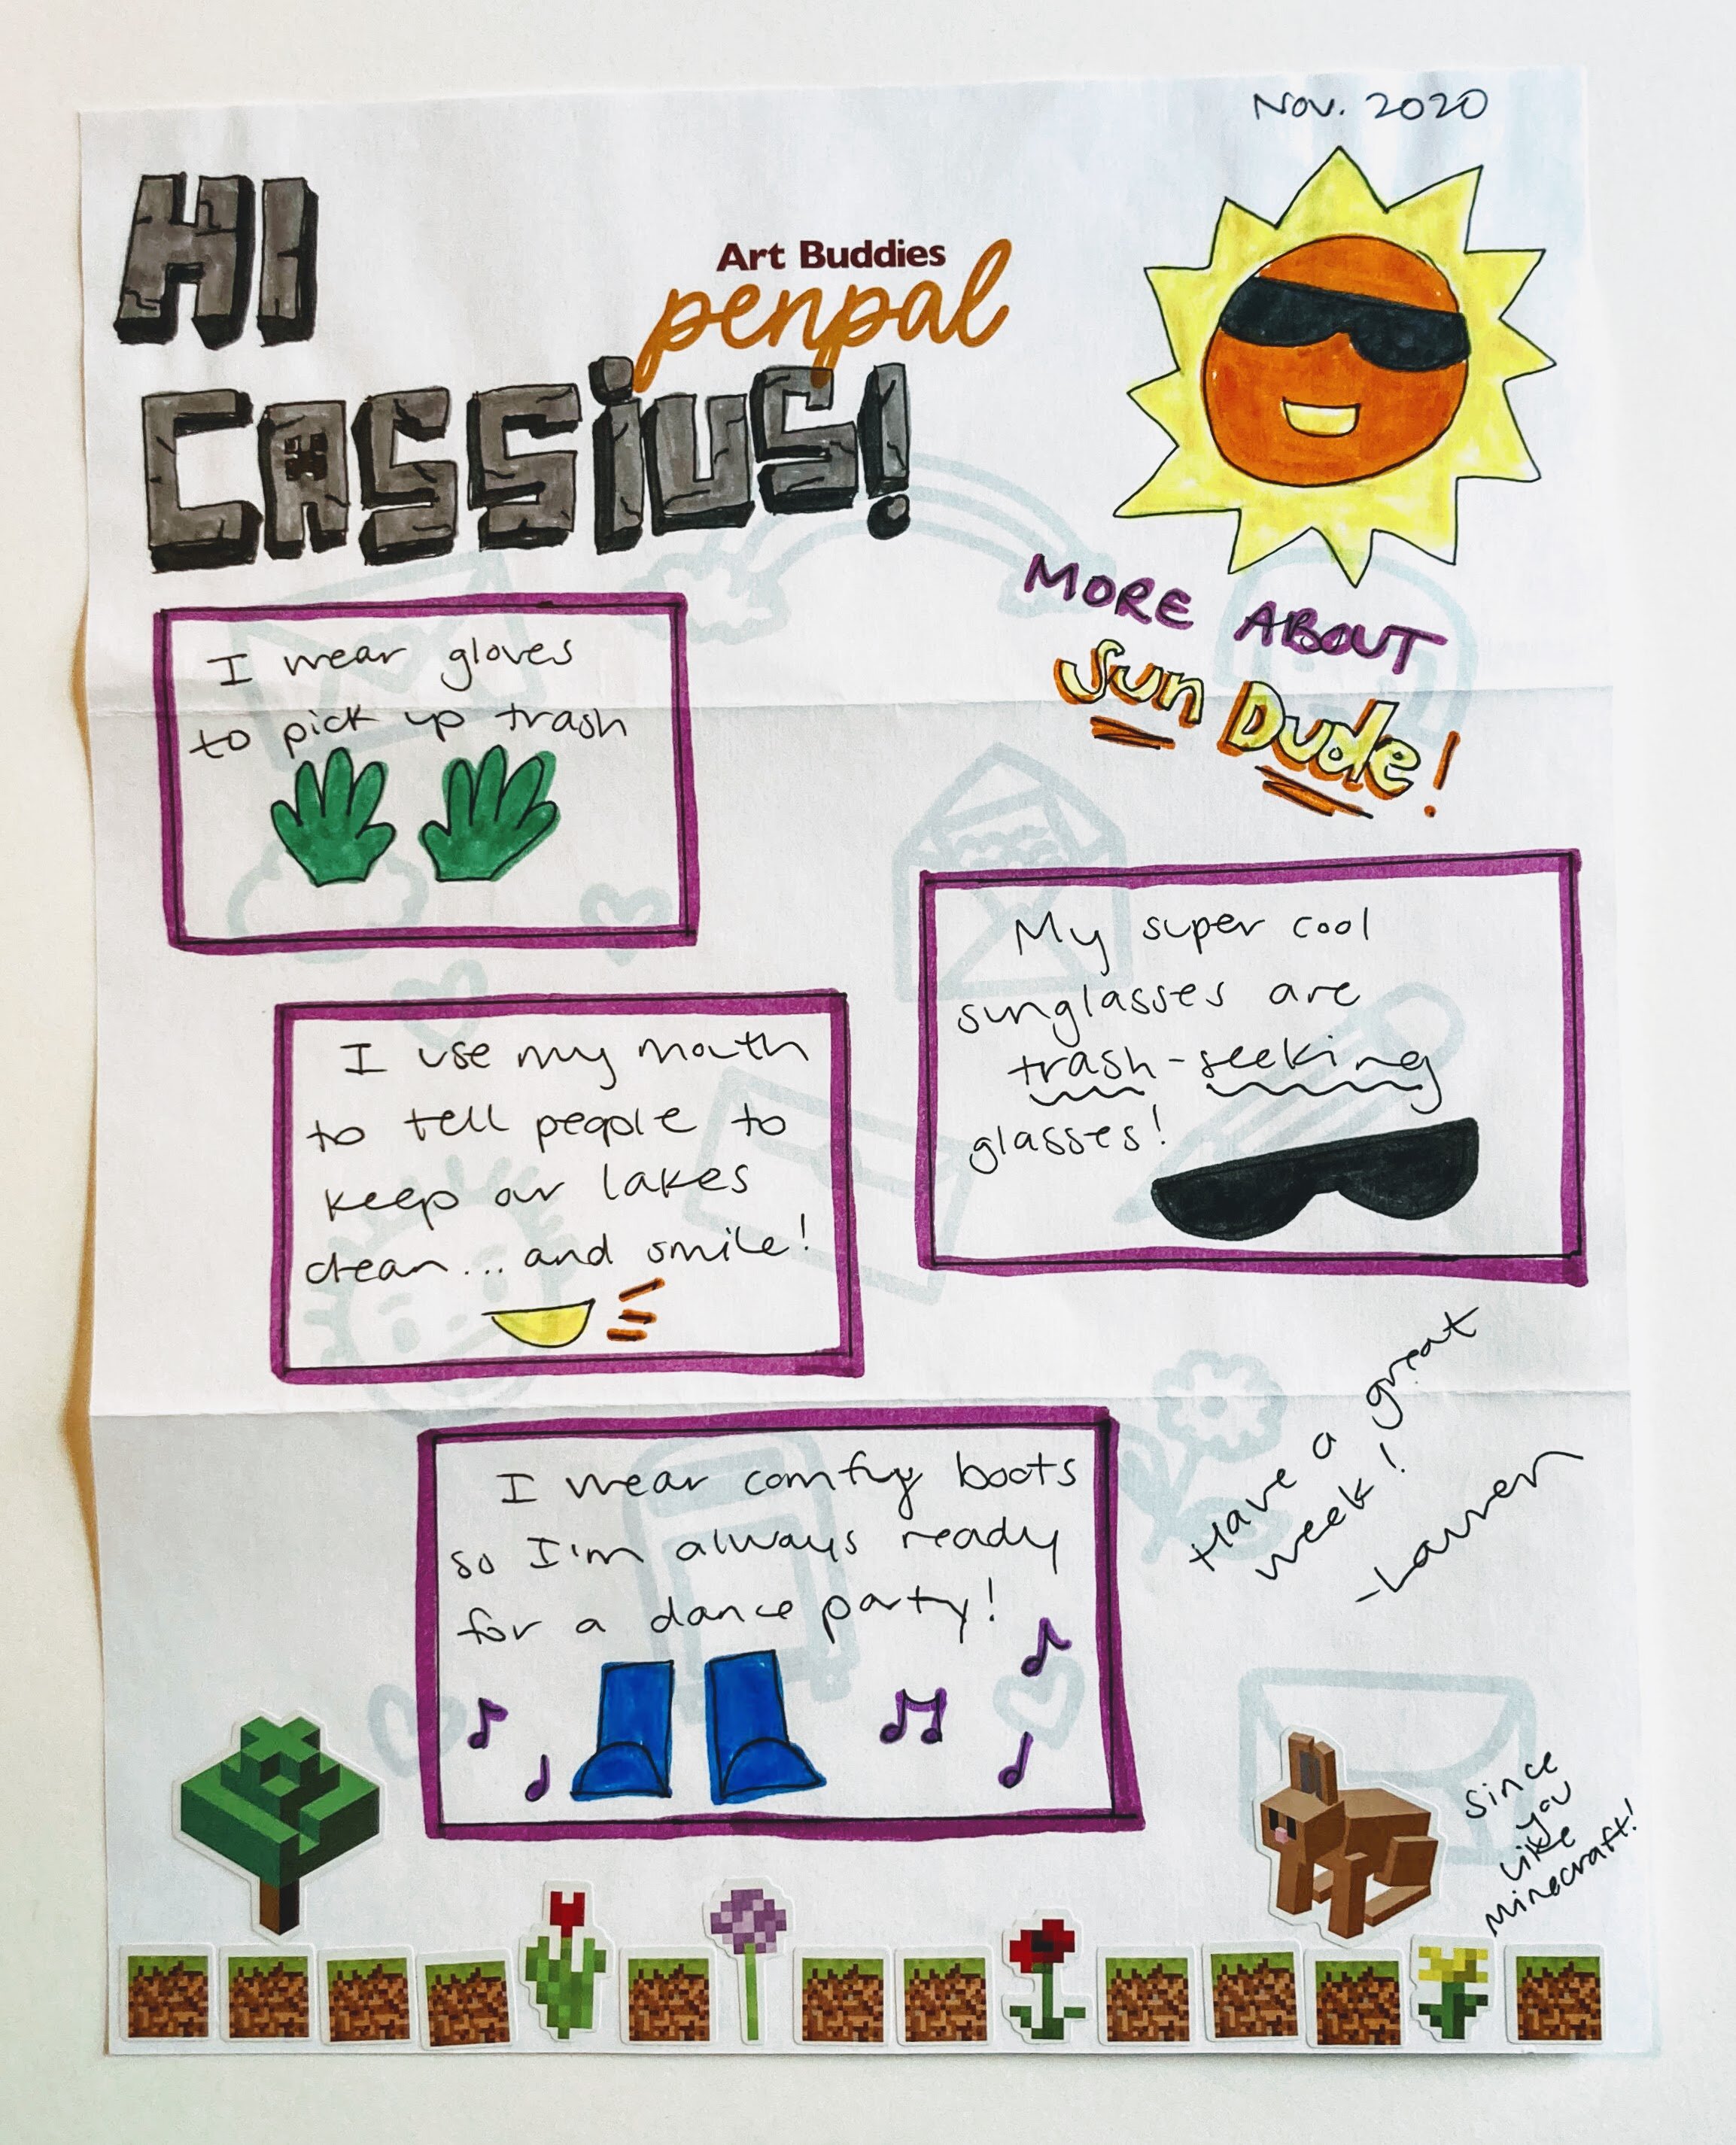 Nov. 2020
HI
Art Buddies
penpal
CASSIUS!
MORE ABOUT
Sun Dude!
I wear gloves
to pick up trash
My super cool
sunglasses are
trash-seeking
glasses!
I use my mouth
to tell people to
keep our lakes
clean... and smile!
I wear comfy boots
so I'm always ready
for a dance party!
Have a great
week!
-Lauren
Since
you
like
Minecraft!